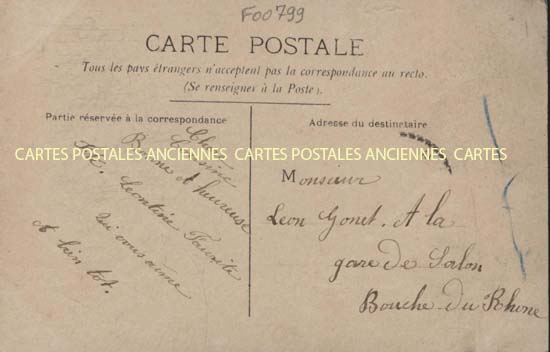 F00799
CARTE POSTALE
Tous les pays étrangers n'acceptent pas la correspondance au recto.
(Se renseigner à la Poste).
Partie réservée à la correspondance
Adresse du destinataire
CARTES POSTALES ANCIENNES CARTES POSTALES ANCIENNES CARTES
Cousine
Bonne et heureuse
Leontine
qui vous aime
A bien tot.
Monsieur
Leon Gonet. A la
gare de Salon
Bouche du Rhone